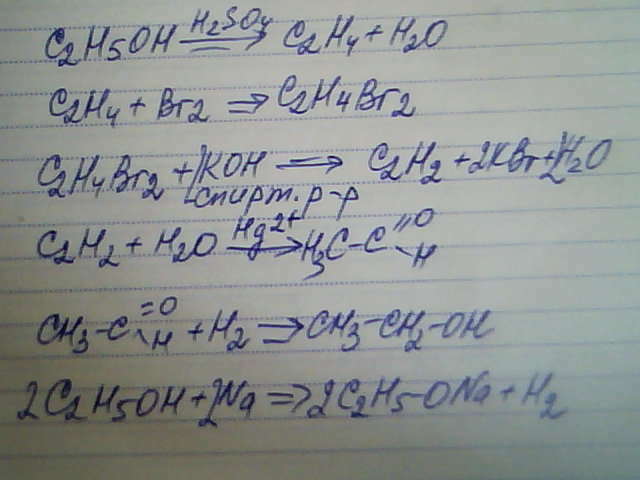 C2H5OH H2SO4⟶ C2H4 + H2O
C2H4 + Br2 ⇒ C2H4Br2
C2H4Br2 + 2KOH ⟹ C2H2 + 2KBr + 2H2O
спирт. р-р
C2H2 + H2O Hg2+⟶ H3C-C=O-H
CH3-C=O-H + H2 ⟹ CH3-CH2-OH
2C2H5OH + 2Na ⇒ 2C2H5-ONa + H2